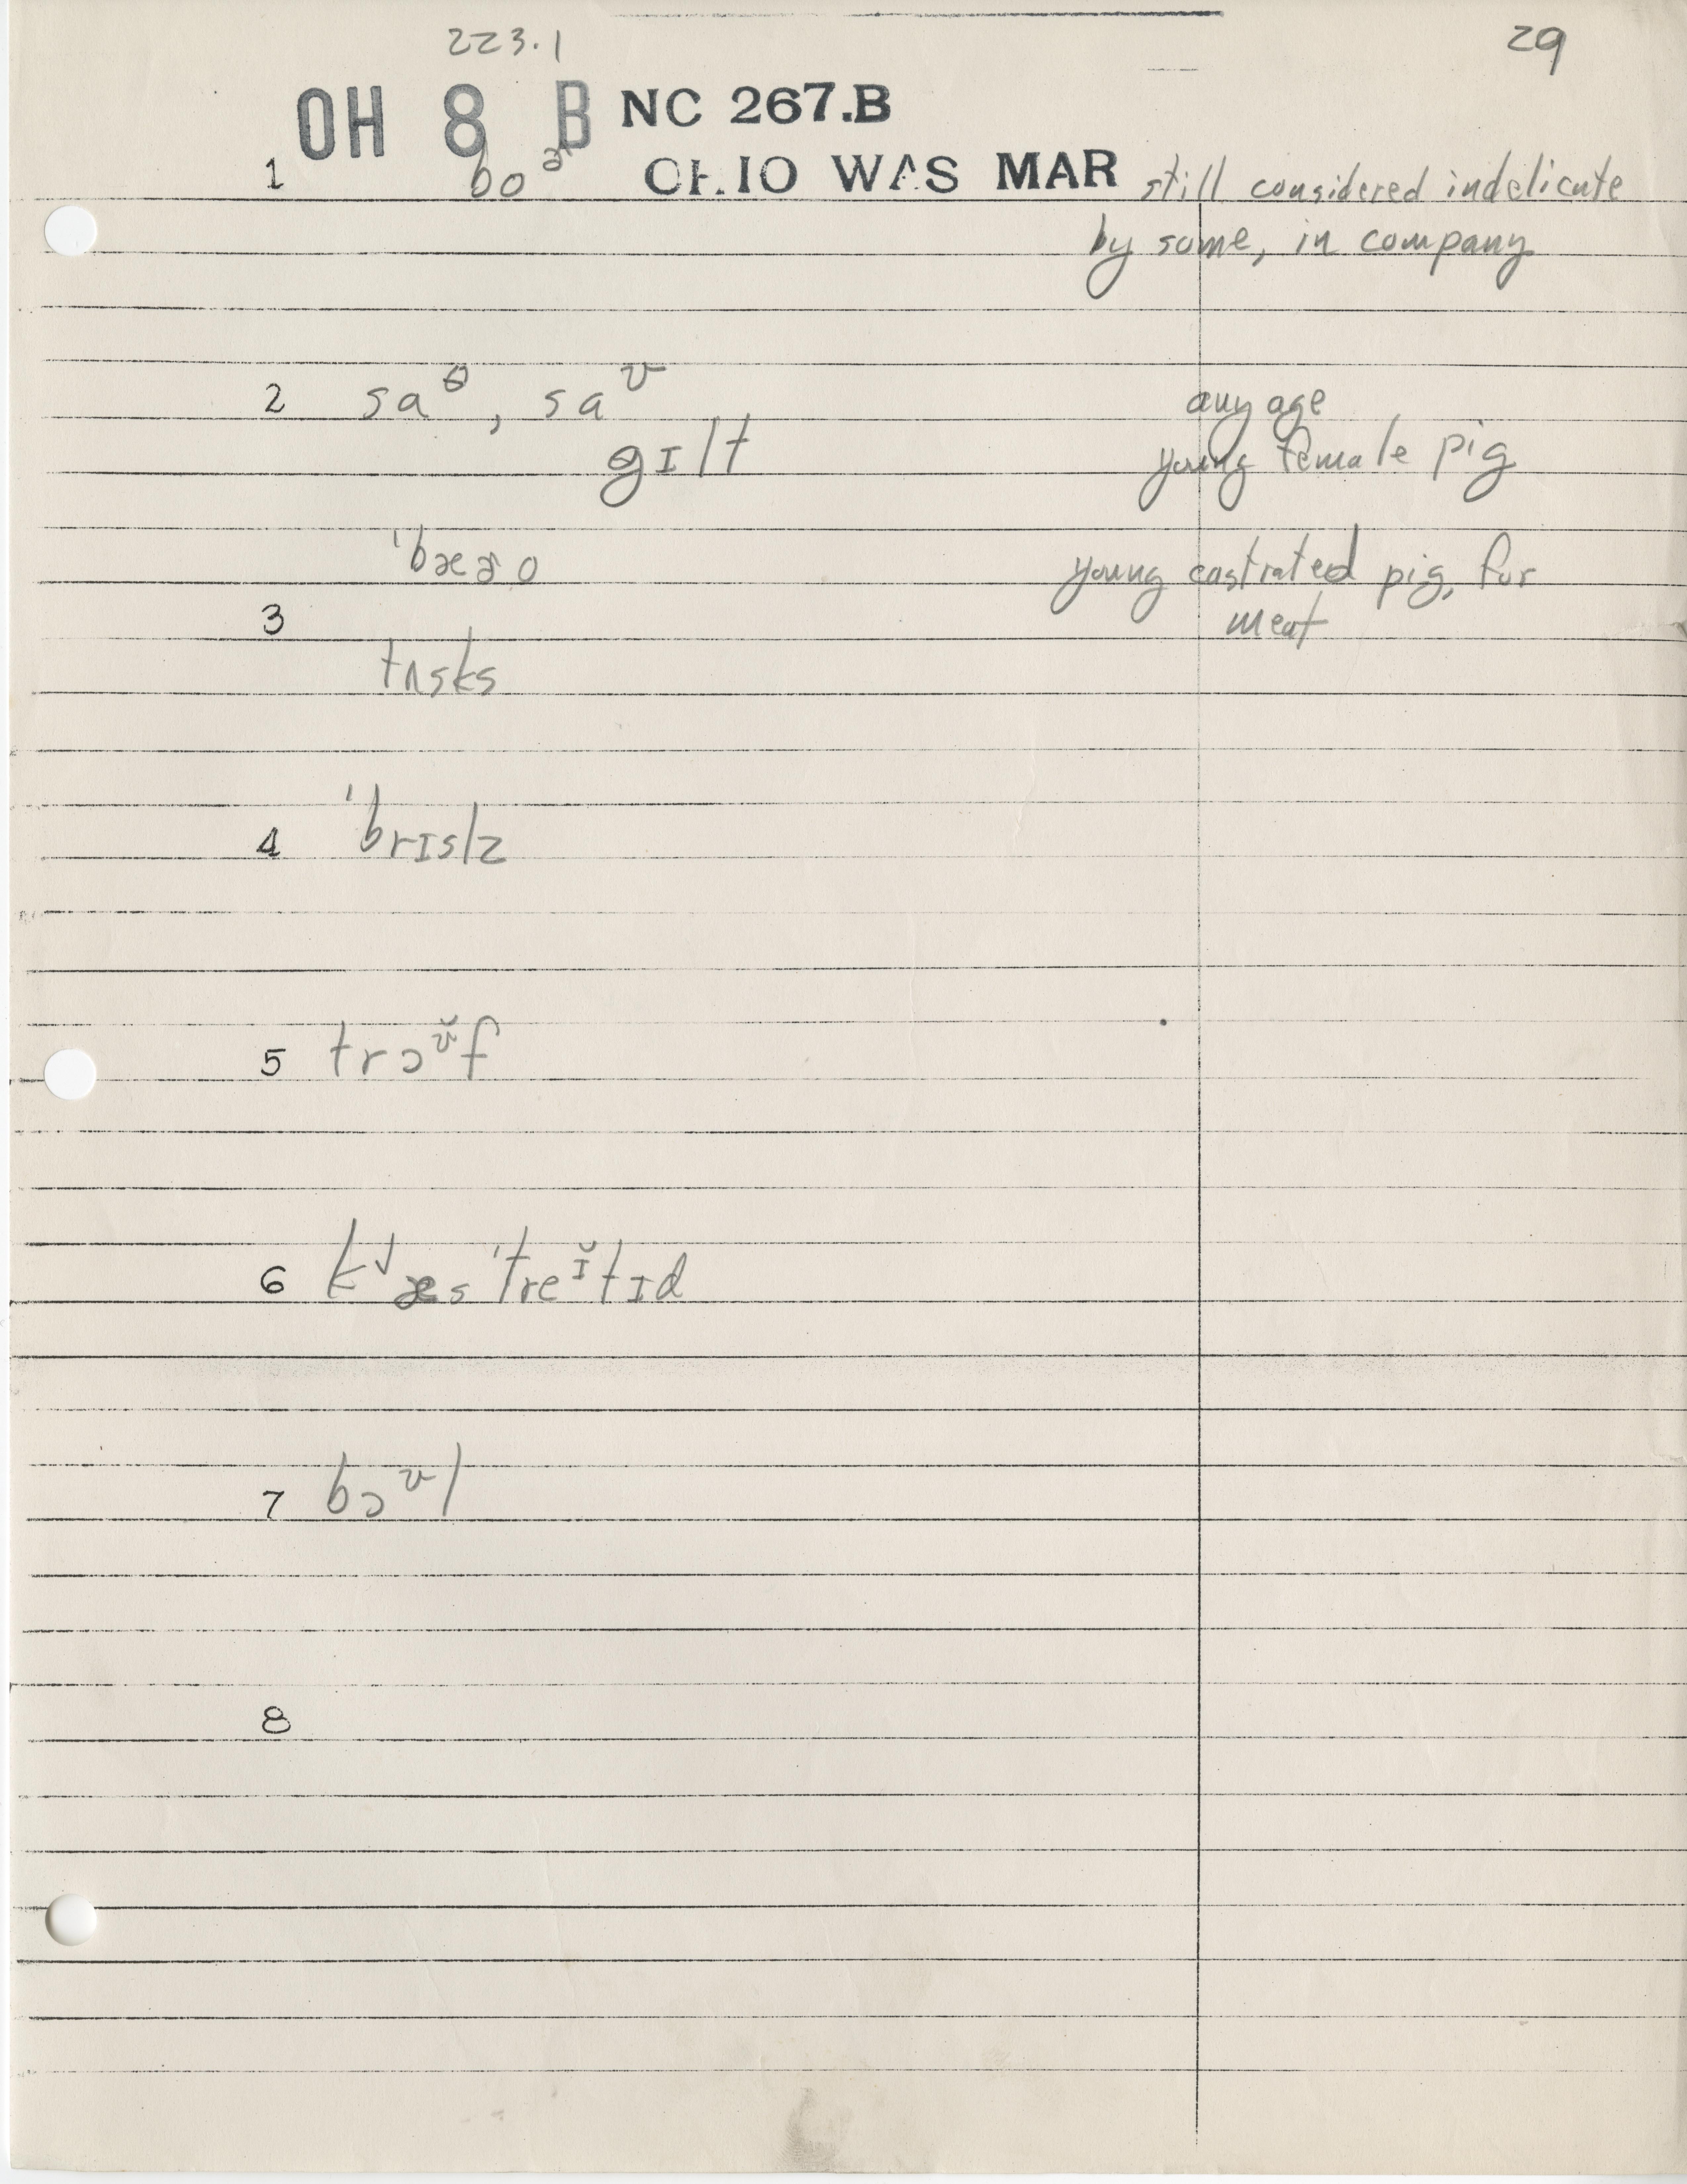 223.1
29
OH 8 B NC 267.B
OHIO WAS MAR
1 boᵊ˞ still considered indelicate
by some, in company
2 saᶿ, saᶷ any age
gɪlt young female pig
ˈbæɚo young castrated pig, for
3 meat
tʌsks
4 ˈbrɪslz
5 trɔᶷ̆f
6 k˩æsˈtreᶦ̆tɪd
7 bɔᶷl
8